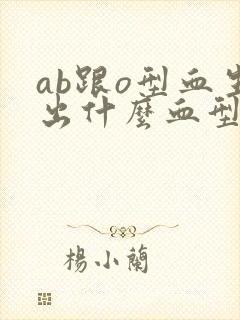 ab跟o型血生
出什麼血型
楊小蘭